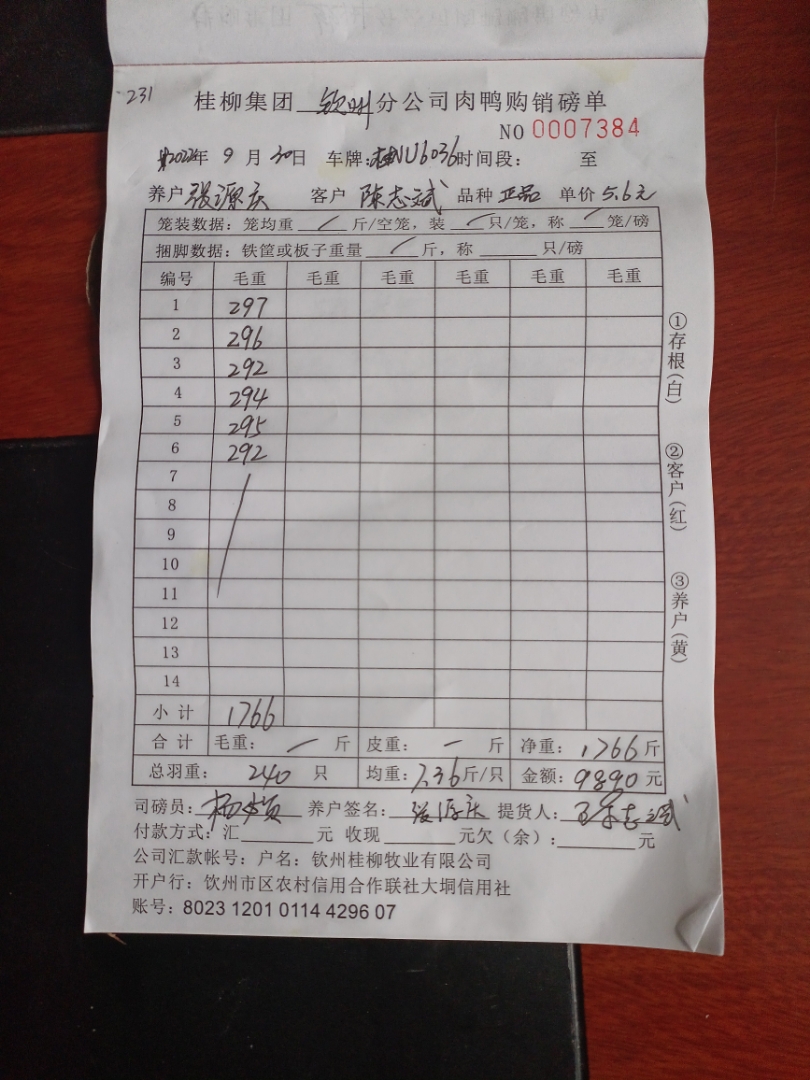 231
桂柳集团 钦州 分公司肉鸭购销磅单
NO 0007384
2022年 9 月 30日 车牌:桂NU6036 时间段: 至
养户 张源庆 客户 陈志斌 品种 正品 单价 5.6元
笼装数据: 笼均重 / 斤/空笼, 装 / 只/笼, 称 / 笼/磅
捆脚数据: 铁筐或板子重量 / 斤, 称 只/磅
编号 毛重 毛重 毛重 毛重 毛重 毛重
1 297
2 296
3 292
4 294
5 295
6 292
7
8
9
10
11
12
13
14
小 计 1766
合 计 毛重: 一 斤 皮重: 一 斤 净重: 1766 斤
总羽重: 240 只 均重: 7.36 斤/只 金额: 9890 元
司磅员: 养户签名: 张源庆 提货人:
付款方式: 汇 元 收现 元欠(余): 元
公司汇款帐号: 户名: 钦州桂柳牧业有限公司
开户行: 钦州市区农村信用合作联社大垌信用社
账号: 8023 1201 0114 4296 07
①存根(白)
②客户(红)
③养户(黄)